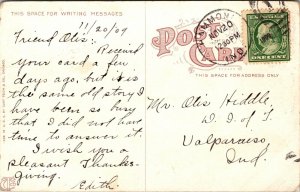 THIS SPACE FOR WRITING MESSAGES
11/20/09
Friend Otis:
Received
your card a few
days ago, but it is
the same old story I
have been so busy
that I did not have
time to answer it.
I wish you a
pleasant Thanks-
giving.
Edith
POST
CARD
THIS SPACE FOR ADDRESS ONLY
HAMMOND
NOV 20
230 PM
IND.
ONE CENT
Mr. Otis Hiddle,
Valparaiso
Ind.